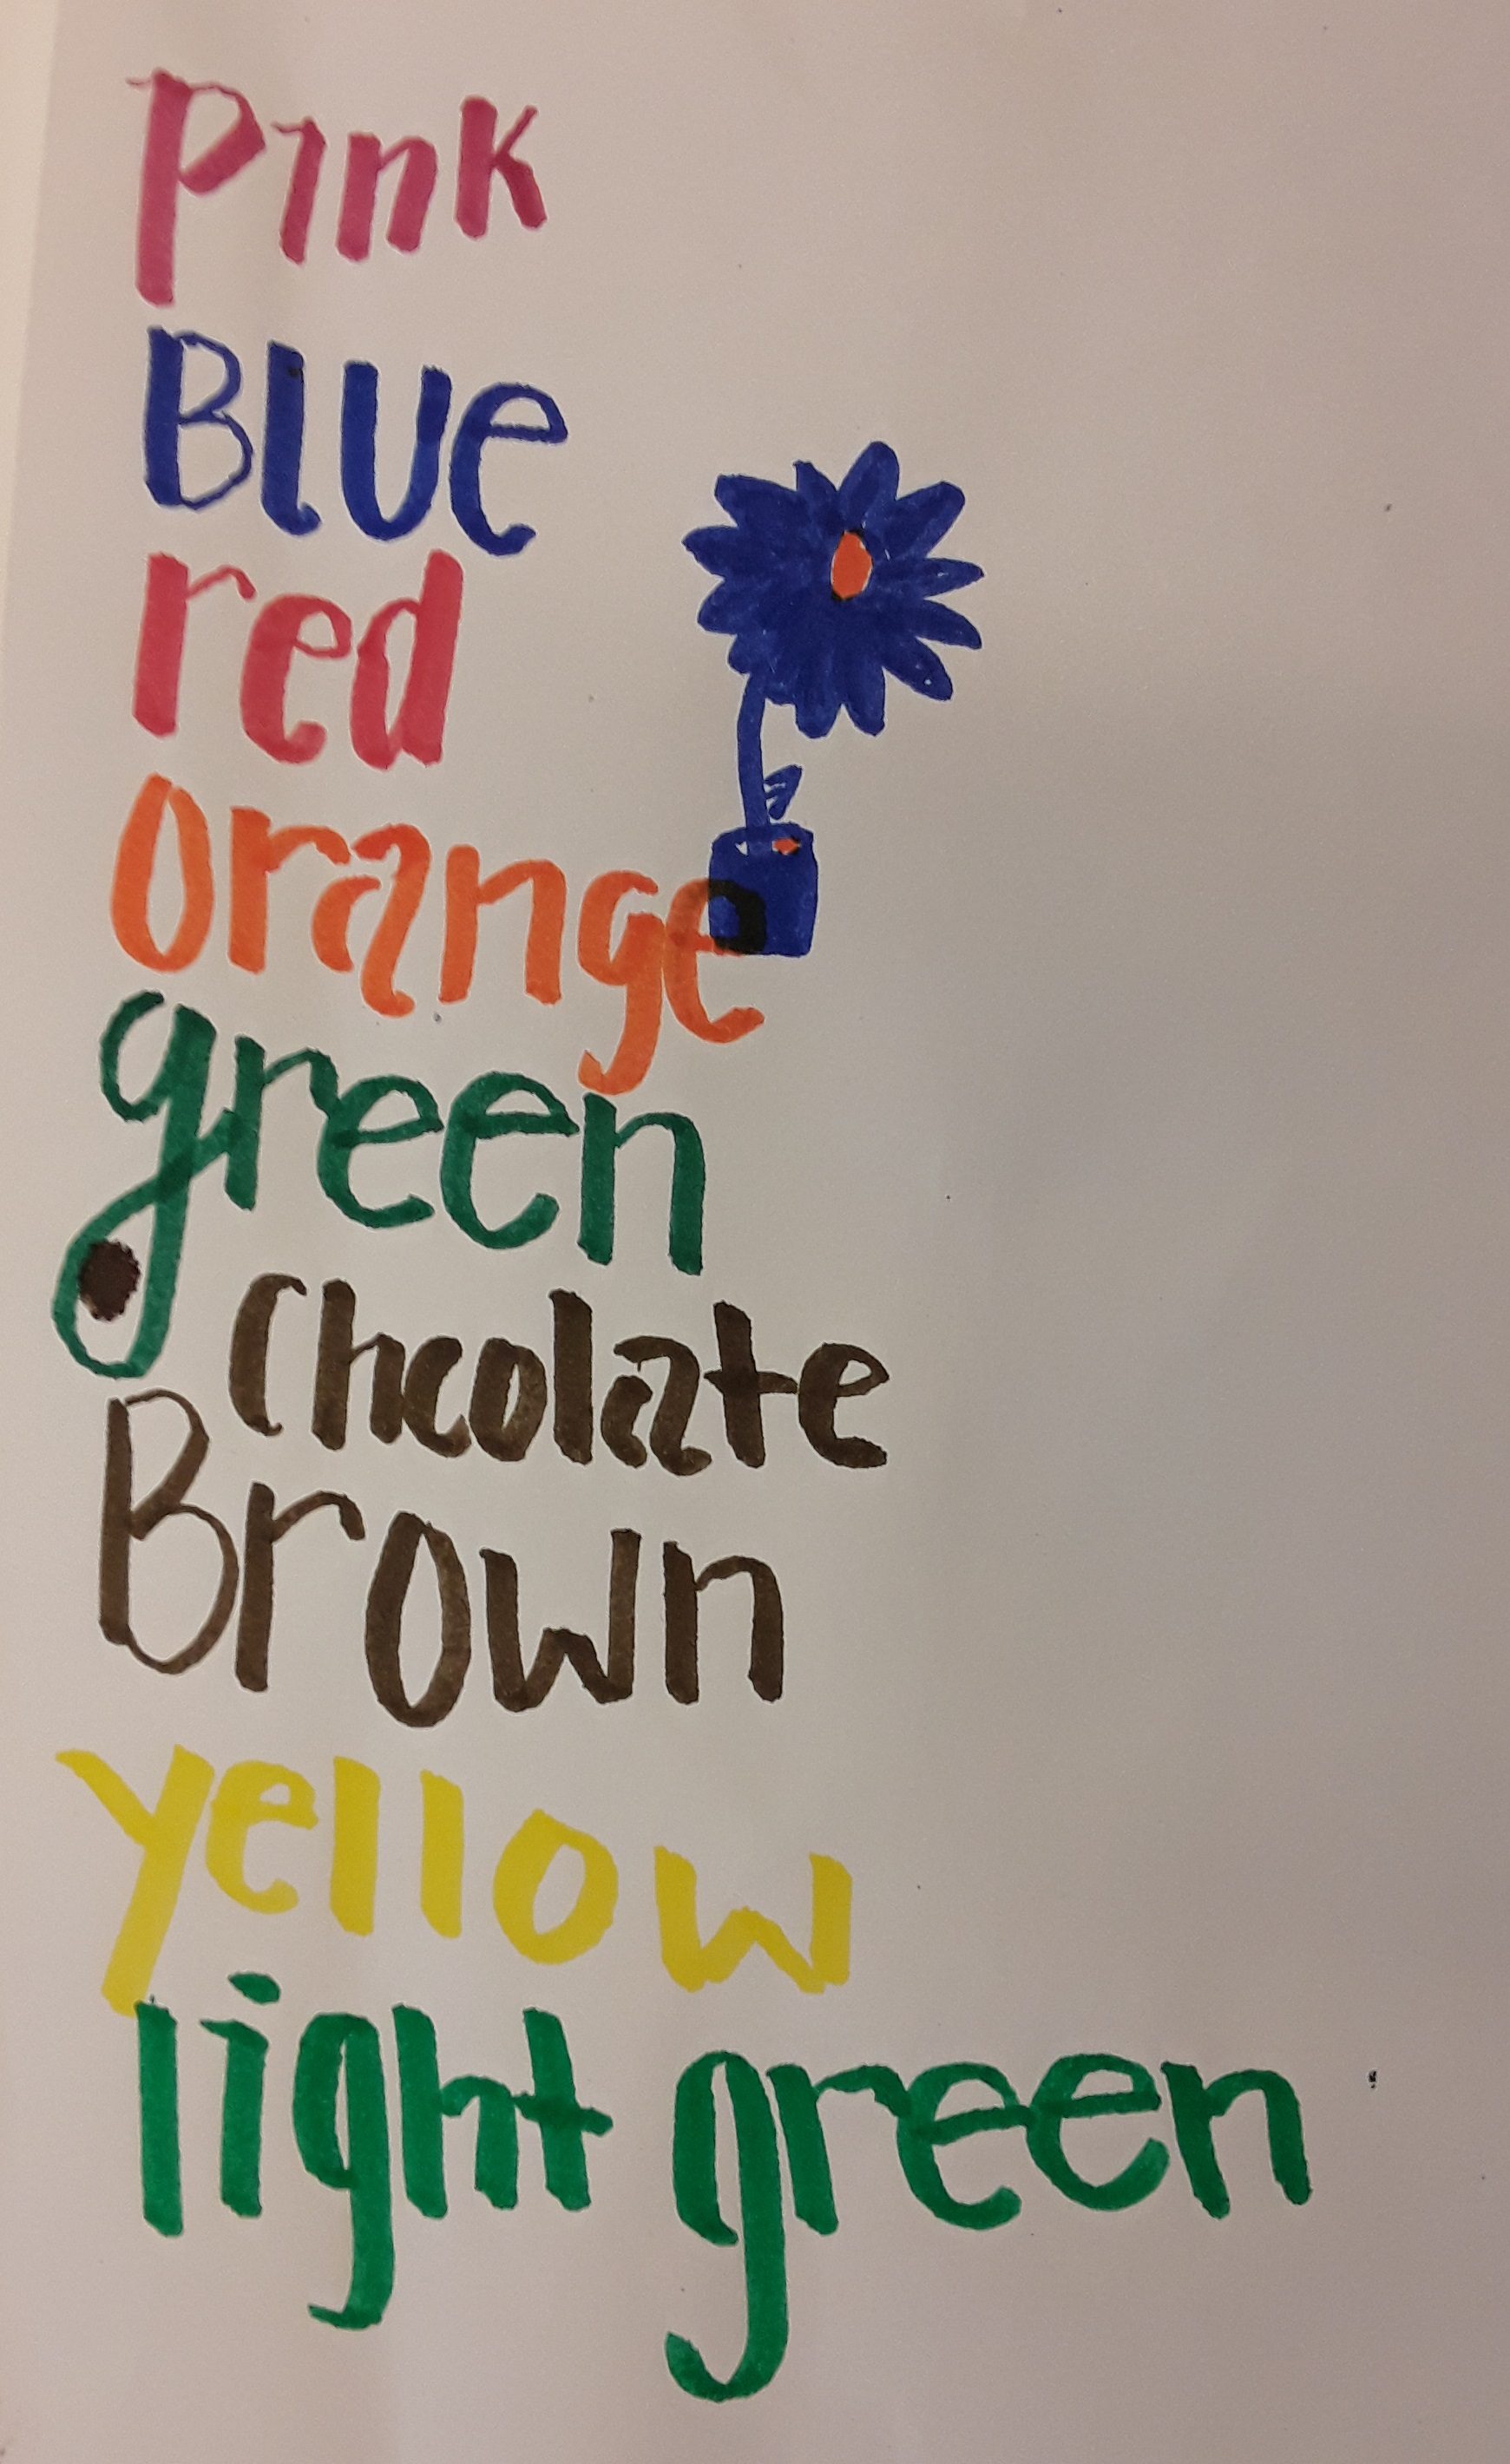 Pink
Blue
red
orange
green
Chcolate
Brown
yellow
light green